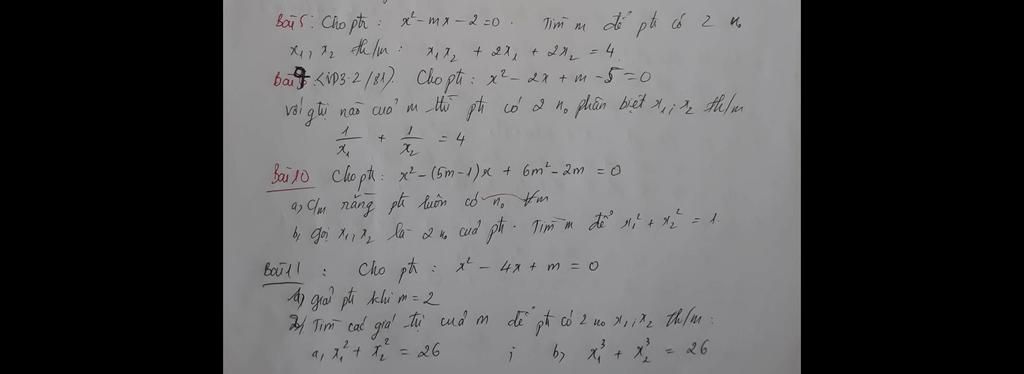 Bài 5: Cho pt: x² - mx - 2 = 0. Tìm m để pt có 2 n₀
x₁, x₂ th/m: x₁x₂ + 2x₁ + 2x₂ = 4.
Bài 9 <VD3.2/81). Cho pt: x² - 2x + m - 5 = 0
với gtrị nào cuả m thì pt có 2 n₀ phân biệt x₁; x₂ th/m
1/x₁ + 1/x₂ = 4
Bài 10 Cho pt: x² - (5m-1)x + 6m² - 2m = 0
a, C/m rằng pt luôn có n₀ ∀m
b, Gọi x₁, x₂ là 2 n₀ cuả pt. Tìm m để x₁² + x₂² = 1.
Bài 11 : Cho pt: x² - 4x + m = 0
1) giải pt khi m = 2
2) Tìm các giá trị cuả m để pt có 2 n₀ x₁; x₂ th/m:
a, x₁² + x₂² = 26 ; b, x₁³ + x₂³ = 26